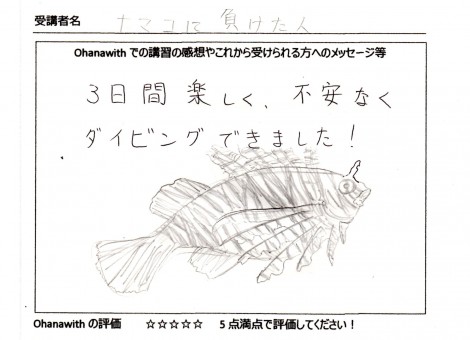 受講者名 ナマコに負けた人
Ohanawith での講習の感想やこれから受けられる方へのメッセージ等
3日間楽しく、不安なく
ダイビングできました!
Ohanawith の評価 ☆☆☆☆☆ 5点満点で評価してください!